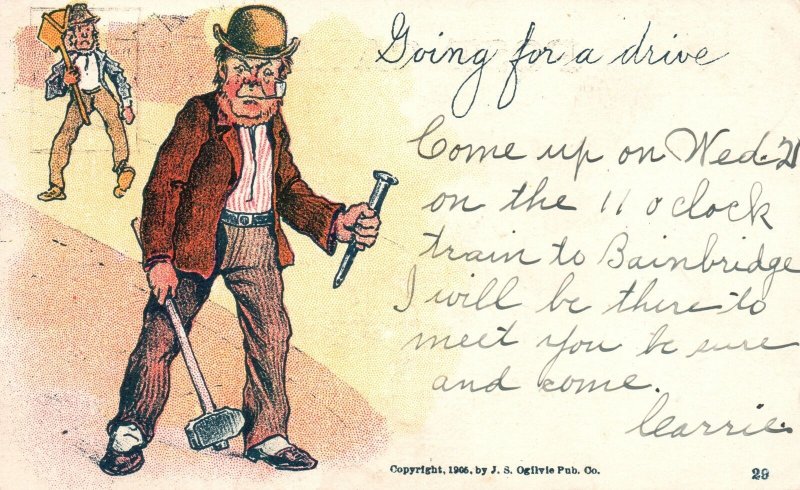 Going for a drive
Come up on Wed. 21
on the 11 o'clock
train to Bainbridge
I will be there to
meet you be sure
and come.
Carrie.
Copyright, 1905, by J. S. Ogilvie Pub. Co.
29